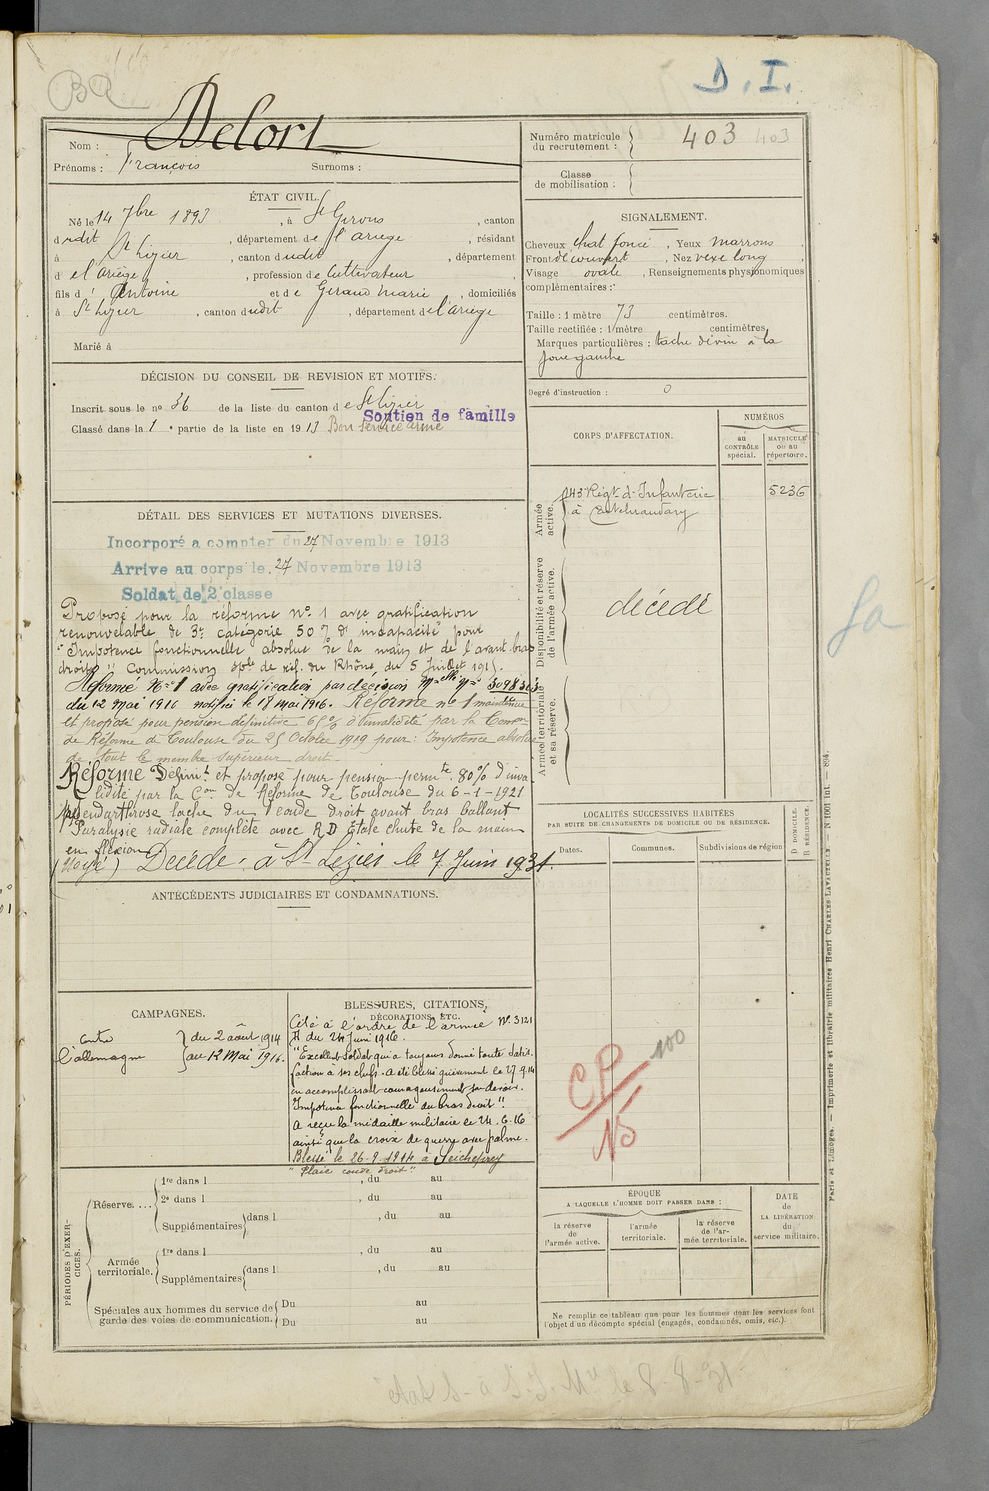 BA
D.I.
Nom : Delort
Prénoms : François Surnoms :
Numéro matricule du recrutement : 403 403
Classe de mobilisation :
ÉTAT CIVIL.
Né le 14 7bre 1893, à St Girons, canton
dudit St Lizier, département de l'ariège, résidant
à St Lizier, canton dudit, département
d el'Ariège, profession de Cultivateur
fils d' Antoine et de Geraud Marie, domiciliés
à St Lizier, canton dudit, département de l'ariège
Marié à
SIGNALEMENT.
Cheveux chat foncé, Yeux marrons,
Front découvert, Nez vexe long,
Visage ovale, Renseignements physionomiques
complémentaires :
Taille : 1 mètre 73 centimètres.
Taille rectifiée : 1 mètre centimètres.
Marques particulières : tache de vin à la
joue gauche
Degré d'instruction : 0
DÉCISION DU CONSEIL DE REVISION ET MOTIFS.
Inscrit sous le no 36 de la liste du canton de St Lizier
Soutien de famille
Classé dans la 1e partie de la liste en 1913 Bon Service armé
CORPS D'AFFECTATION.
NUMÉROS
au CONTRÔLE spécial.
MATRICULE ou au répertoire.
Armée active.
143e Régt d'Infanterie 5236
à Castelnaudary
Disponibilité et réserve de l'armée active.
décédé
Armée territoriale et sa réserve.
DÉTAIL DES SERVICES ET MUTATIONS DIVERSES.
Incorporé a compter du 27 Novembre 1913
Arrive au corps le 27 Novembre 1913
Soldat de 2 classe
Proposé pour la réforme no 1 avec gratification
renouvelable de 3e catégorie 50 % d'incapacité pour
"Impotence fonctionnelle absolue de la main et de l'avant bras
droits" Commission sple de réf. du Rhône du 5 Juillet 1915.
Réformé No 1 avec gratification par décision Melle No
du 12 Mai 1916 notifiée le 18 Mai 1916. Réforme no 1 maintenue
et proposé pour pension définitive 65 % d'invalidité par la Comon
de Réforme de Toulouse du 25 Octobre 1919 pour : Impotence absolue
de tout le membre supérieur droit.
Réformé Définit et proposé pour pension permte 80 % d'inva
lidité par la Con de Réforme de Toulouse du 6-1-1921
pseudarthrose lache du coude droit avant bras ballant
Paralysie radiale complète avec R D totale chute de la main
en flexion
(Noyé) Décédé à St Lizier le 7 Juin 1931.
LOCALITÉS SUCCESSIVES HABITÉES
PAR SUITE DE CHANGEMENTS DE DOMICILE OU DE RÉSIDENCE.
Dates. Communes. Subdivisions de région
D DOMICILE. R RÉSIDENCE.
ANTÉCÉDENTS JUDICIAIRES ET CONDAMNATIONS.
CAMPAGNES.
Contre l'allemagne
du 2 août 1914
au 12 Mai 1916.
BLESSURES, CITATIONS, DÉCORATIONS, ETC.
Cité à l'ordre de l'armée No 3121
du 24 Juin 1916.
"Excellent soldat qui a toujours donné toute satis
faction à ses chefs. A été blessé grièvement le 27.9.14
en accomplissant courageusement son devoir.
Impotence fonctionnelle du bras droit".
A reçu la médaille militaire le 24.6.16
ainsi que la croix de guerre avec palme.
Blessé le 26-9-1914 à Seicheprey
"Plaie coude droit"
CP
No
100
PÉRIODES D'EXERCICES.
Réserve....
1re dans l , du au
2e dans l , du au
Supplémentaires dans l , du au
Armée territoriale.
1re dans l , du au
Supplémentaires dans l , du au
Spéciales aux hommes du service de garde des voies de communication.
Du au
Du au
ÉPOQUE
A LAQUELLE L'HOMME DOIT PASSER DANS :
la réserve de l'armée active.
l'armée territoriale.
la réserve de l'armée territoriale.
DATE de LA LIBÉRATION du service militaire.
Ne remplir ce tableau que pour les hommes dont les services font
l'objet d'un décompte spécial (engagés, condamnés, omis, etc.).
Paris et Limoges. — Imprimerie et librairie militaires Henri CHARLES-LAVAUZELLE. — N° 1001 int. — 894.